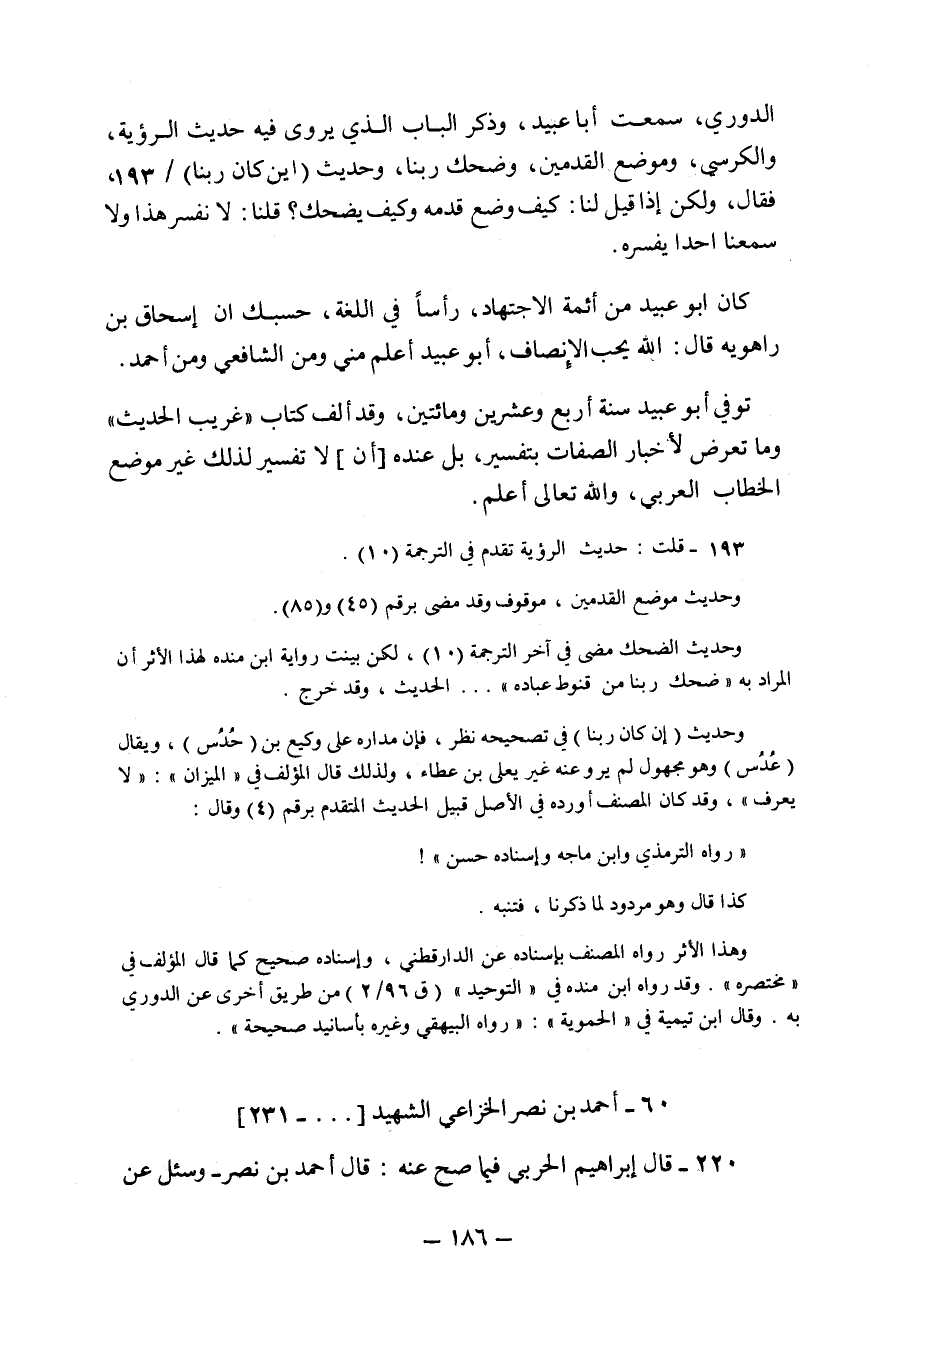 الدوري، سمعت أبا عبيد، وذكر الباب الذي يروى فيه حديث الرؤية،
والكرسي، وموضع القدمين، وضحك ربنا، وحديث (اين كان ربنا) / ١٩٣،
فقال، ولكن إذا قيل لنا: كيف وضع قدمه وكيف يضحك؟ قلنا: لا نفسر هذا ولا
سمعنا احدا يفسره.
كان ابو عبيد من أئمة الاجتهاد، رأساً في اللغة، حسبك ان إسحاق بن
راهويه قال: الله يحب الإنصاف، أبو عبيد أعلم مني ومن الشافعي ومن أحمد.
توفي أبو عبيد سنة أربع وعشرين ومائتين، وقد ألف كتاب «غريب الحديث»
وما تعرض لأخبار الصفات بتفسير، بل عنده [أن] لا تفسير لذلك غير موضع
الخطاب العربي، والله تعالى أعلم.
١٩٣ - قلت : حديث الرؤية تقدم في الترجمة (١٠) .
وحديث موضع القدمين ، موقوف وقد مضى برقم (٤٥) و(٨٥).
وحديث الضحك مضى في آخر الترجمة (١٠) ، لكن بينت رواية ابن منده لهذا الأثر أن
المراد به «ضحك ربنا من قنوط عباده» . . . الحديث ، وقد خرج .
وحديث ( إن كان ربنا ) في تصحيحه نظر ، فإن مداره على وكيع بن ( حُدُس ) ، ويقال
( عُدُس ) وهو مجهول لم يرو عنه غير يعلى بن عطاء ، ولذلك قال المؤلف في « الميزان » : « لا
يعرف » ، وقد كان المصنف أورده في الأصل قبيل الحديث المتقدم برقم (٤) وقال :
« رواه الترمذي وابن ماجه وإسناده حسن » !
كذا قال وهو مردود لما ذكرنا ، فتنبه .
وهذا الأثر رواه المصنف بإسناده عن الدارقطني ، وإسناده صحيح كما قال المؤلف في
« مختصره » . وقد رواه ابن منده في « التوحيد » ( ق ٩٦/ ٢ ) من طريق أخرى عن الدوري
به . وقال ابن تيمية في « الحموية » : « رواه البيهقي وغيره بأسانيد صحيحة » .
٦٠ - أحمد بن نصر الخزاعي الشهيد [ . . . - ٢٣١]
٢٢٠ - قال إبراهيم الحربي فيما صح عنه : قال أحمد بن نصر - وسئل عن
- ١٨٦ -